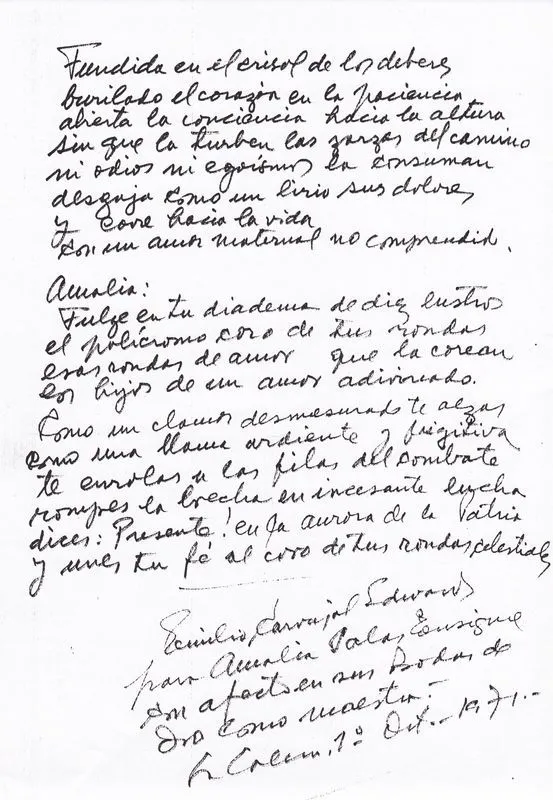 Fundida en el crisol de los deberes
burilado el corazón en la paciencia
abierta la conciencia hacia la altura
sin que la turben las zarzas del camino
ni odios ni egoismos la consuman
desgaja como un lirio sus dolores
y corre hacia la vida
con un amor maternal no comprendid.
Amalia:
Fulge en tu diadema de diez lustros
el polícromo coro de tus rondas
esas rondas de amor que la corean
los hijos de un amor adivinado.
Como un clamor desmesurado te alzas
como una llama ardiente y fugitiva
te enrolas a las filas del combate
rompes la brecha en incesante lucha
dices: Presente! en la aurora de la Patria
y unes tu fé al coro de tus rondas celestiales
Emilio Carvajal Edwards
para Amalia
con afecto en sus Bodas de
Oro como maestra.-
1º Oct.- 1971.-